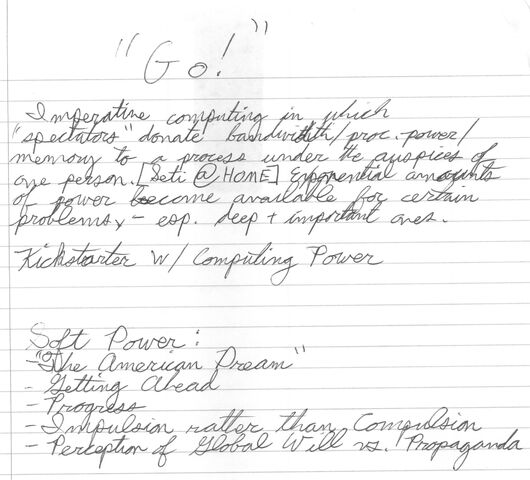 "Go!"
Imperative computing in which
"spectators" donate bandwidth/proc. power/
memory to a process under the auspices of
one person. [Seti @ HOME] Exponential amounts
of power become available for certain
problems, - esp. deep + important ones.
Kickstarter w/ Computing Power
Soft Power:
- "The American Dream"
- Getting Ahead
- Progress
- Impulsion rather than Compulsion
- Perception of Global Will vs. Propaganda